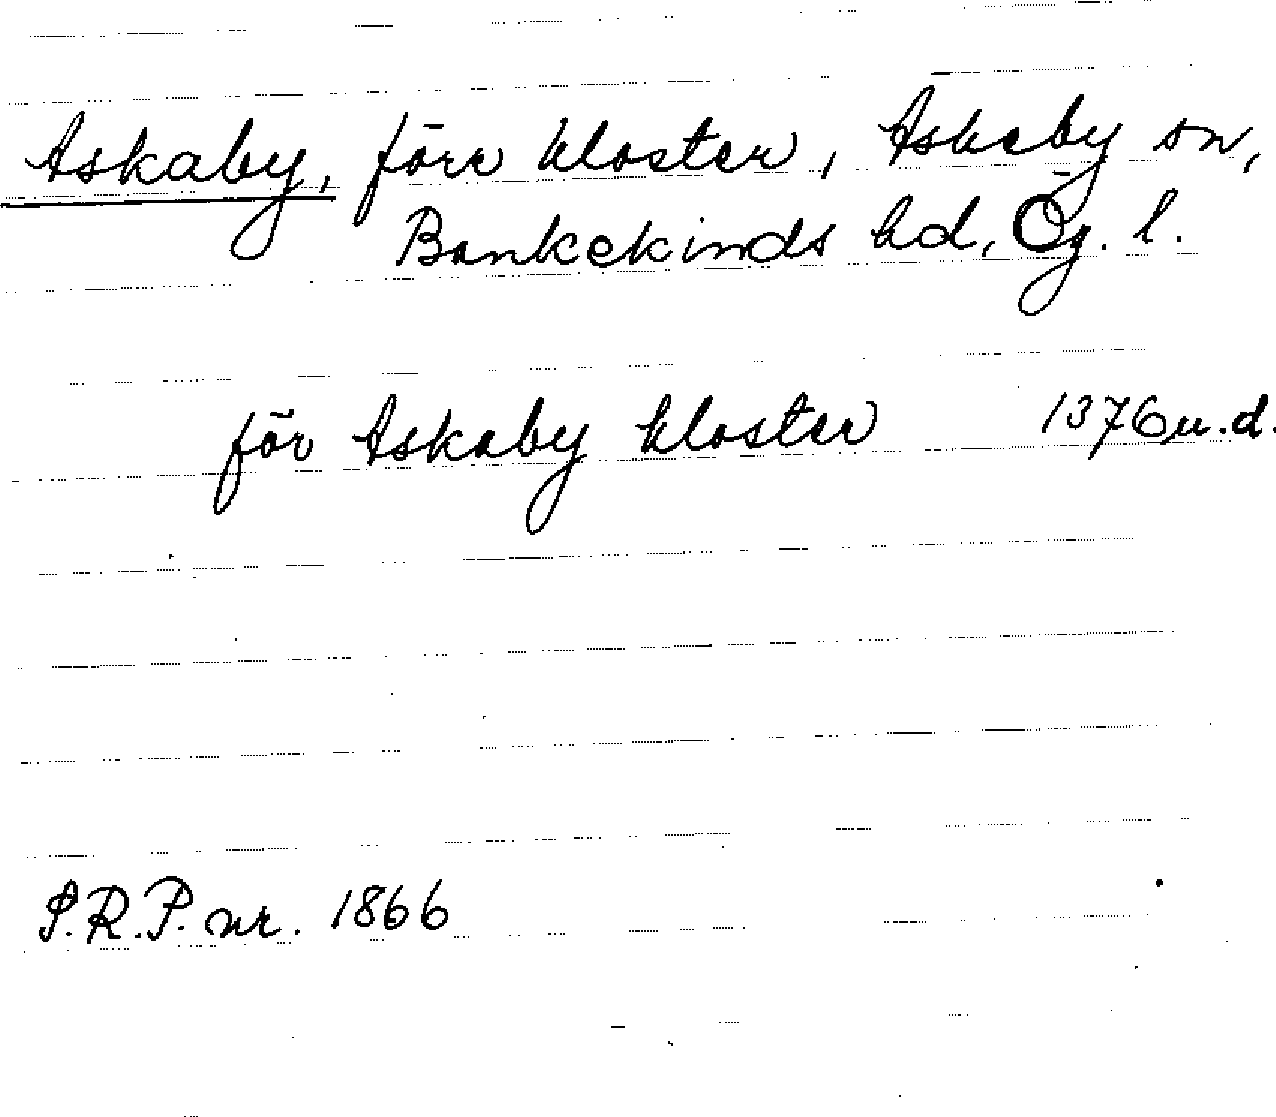 Askaby, före kloster, Askeby sn,
Bankekinds hd, Ög. l.
för Askaby kloster 1376 u.d.
S.R.P. nr. 1866